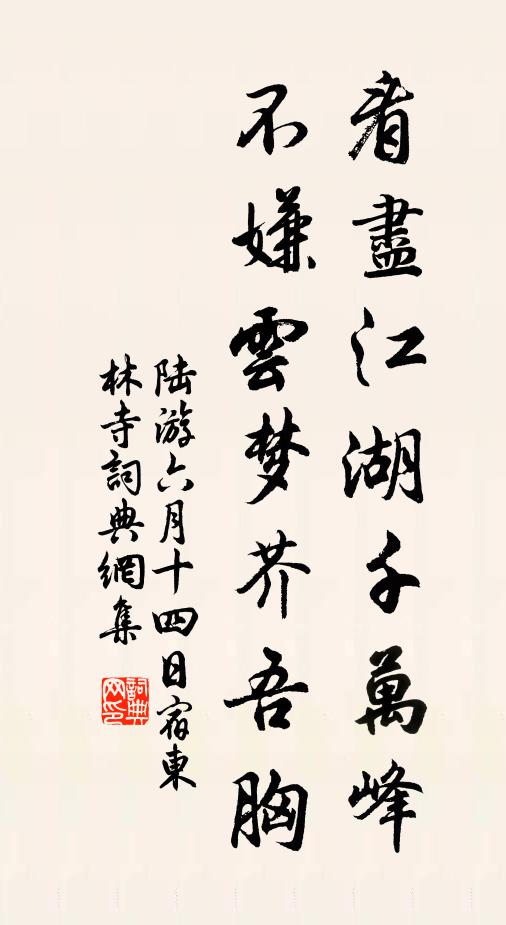 看盡江湖千萬峰
不嫌雲梦芥吾胸
陆游六月十四日宿東
林寺詞典網集
詞典
网印